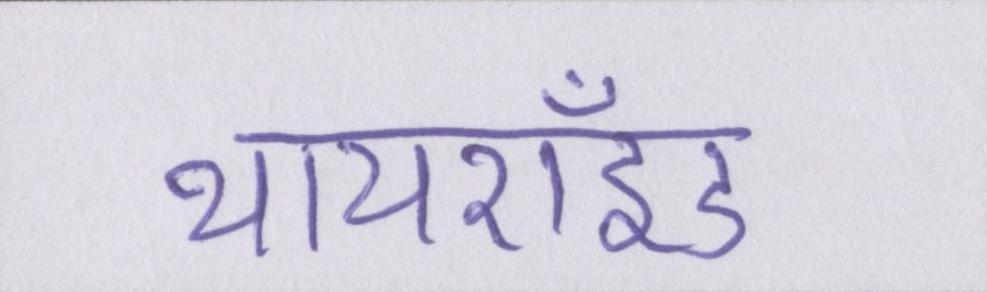 थायराँइड